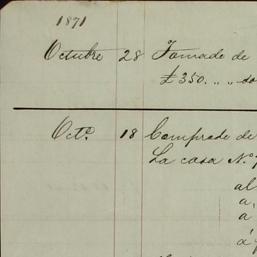 1871
Octubre 28 Tomado de
£350. " "
Oct.º 18 Comprado de
La casa N.º
al
a
a
a